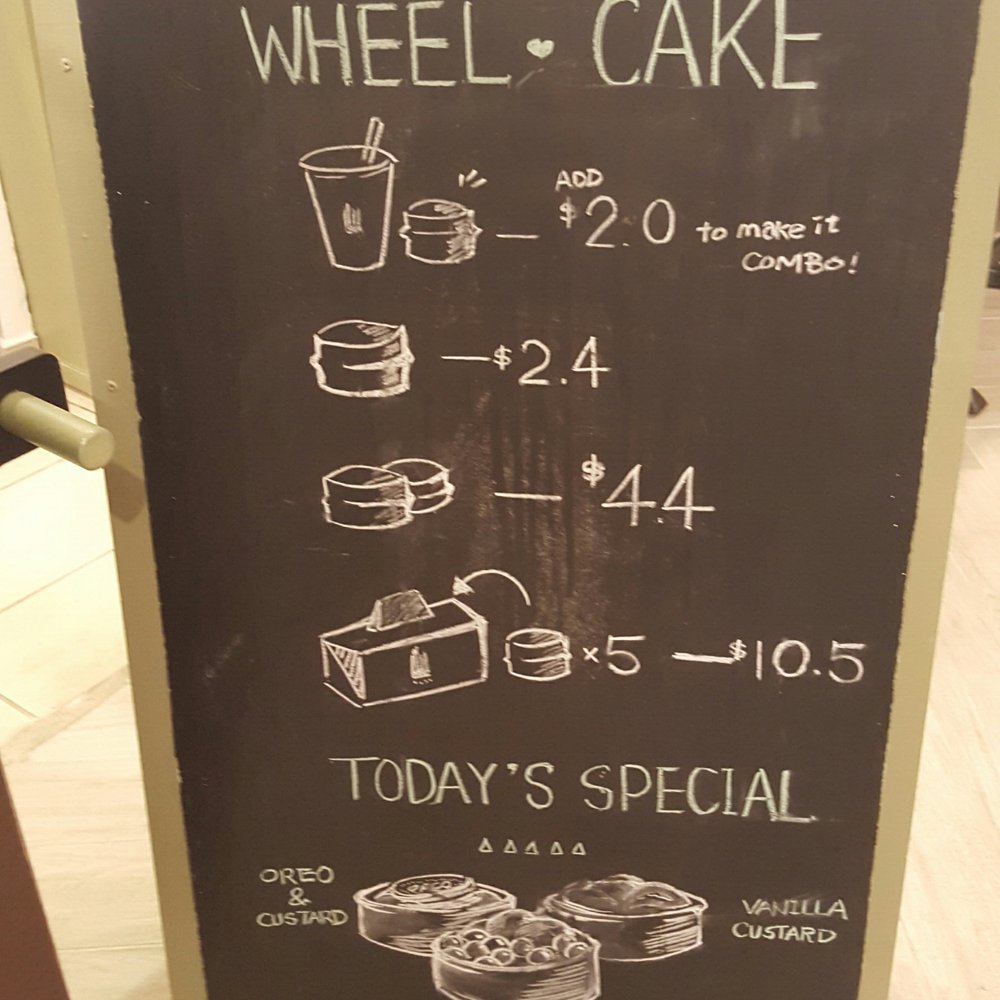 WHEEL CAKE
ADD
$2.0 to make it
COMBO!
$2.4
$4.4
×5 $10.5
TODAY'S SPECIAL
OREO
&
CUSTARD
OREO
VANILLA
CUSTARD